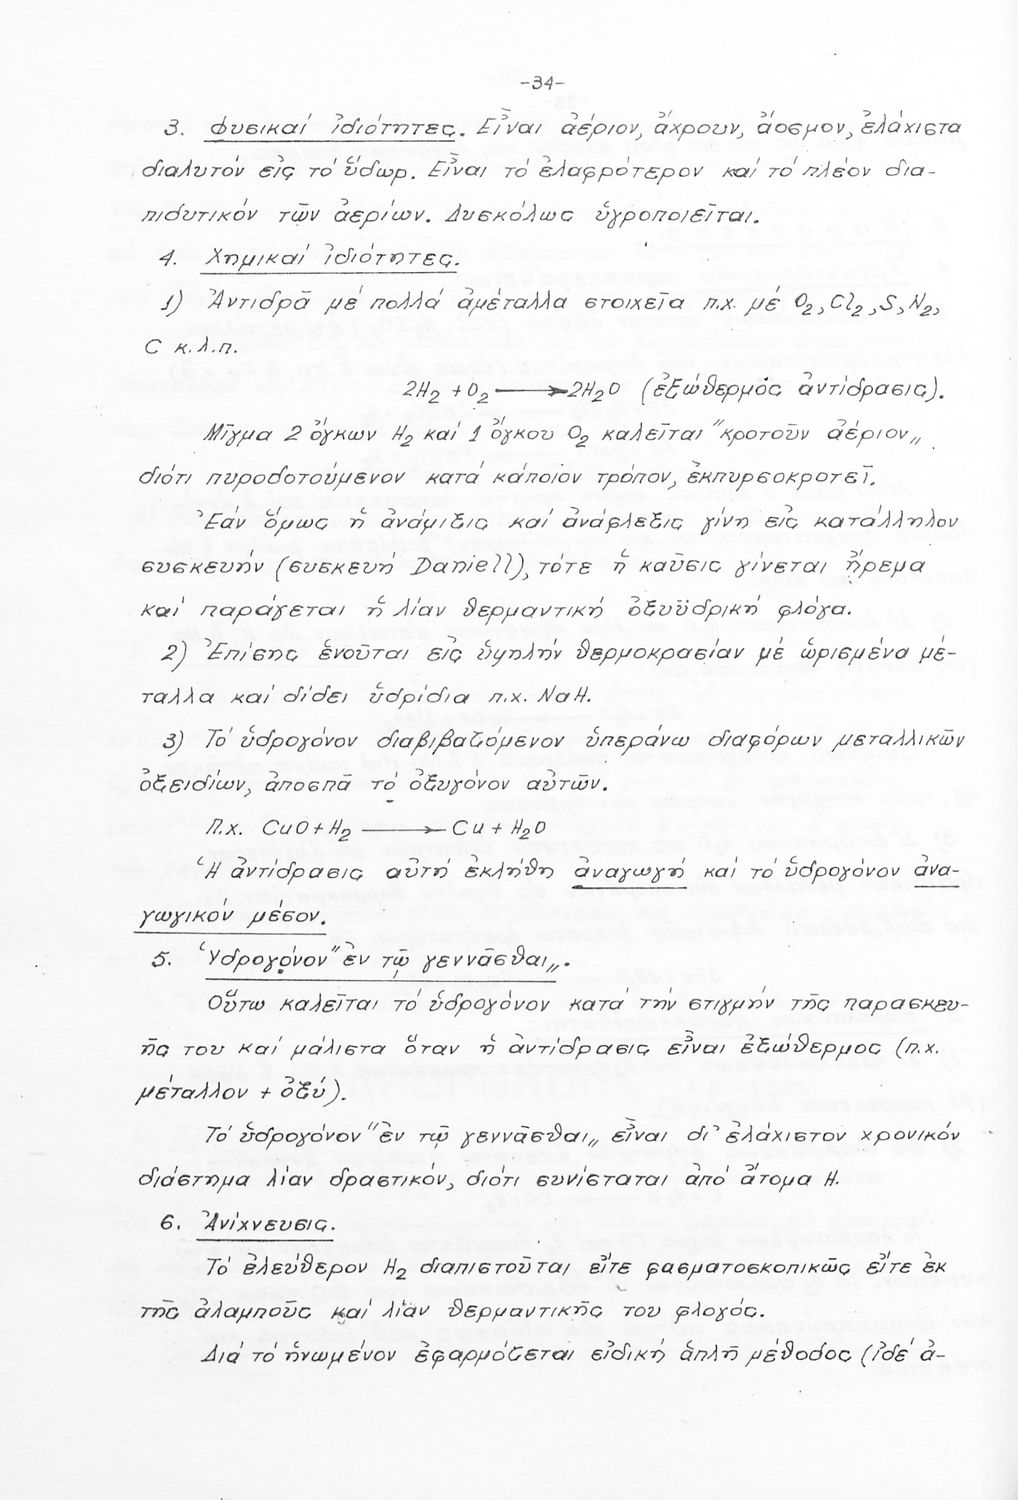 -34-
3. Φυσικαί ἰδιότητες. Εἶναι ἀέριον, ἄχρουν, ἄοσμον, ἐλάχιστα
διαλυτόν εἰς τό ὕδωρ. Εἶναι τό ἐλαφρότερον καί τό πλέον δια-
πιδυτικόν τῶν ἀερίων. Δυσκόλως ὑγροποιεῖται.
4. Χημικαί ἰδιότητες.
1) Ἀντιδρᾶ μέ πολλά ἀμέταλλα στοιχεῖα π.χ. μέ O₂, Cl₂, S, N₂,
C κ.λ.π.
2H₂ + O₂ ⟶ 2H₂O (ἐξώθερμός ἀντίδρασις).
Μῖγμα 2 ὄγκων H₂ καί 1 ὄγκου O₂ καλεῖται "κροτοῦν ἀέριον„
διότι πυροδοτούμενον κατά κάποιον τρόπον, ἐκπυρσοκροτεῖ.
Ἐάν ὅμως ἡ ἀνάμιξις καί ἀνάφλεξις γίνη εἰς κατάλληλον
συσκευήν (συσκευή Daniell), τότε ἡ καῦσις γίνεται ἤρεμα
καί παράγεται ἡ λίαν θερμαντική ὀξυϋδρική φλόγα.
2) Ἐπίσης ἑνοῦται εἰς ὑψηλήν θερμοκρασίαν μέ ὡρισμένα μέ-
ταλλα καί δίδει ὑδρίδια π.χ. NaH.
3) Τό ὑδρογόνον διαβιβαζόμενον ὑπεράνω διαφόρων μεταλλικῶν
ὀξειδίων, ἀποσπᾶ τό ὀξυγόνον αὐτῶν.
Π.χ. CuO + H₂ ⟶ Cu + H₂O
Ἡ ἀντίδρασις αὐτή ἐκλήθη ἀναγωγή καί τό ὑδρογόνον ἀνα-
γωγικόν μέσον.
5. Ὑδρογόνον "ἐν τῷ γεννᾶσθαι„.
Οὕτω καλεῖται τό ὑδρογόνον κατά τήν στιγμήν τῆς παρασκευ-
ῆς του καί μάλιστα ὅταν ἡ ἀντίδρασις εἶναι ἐξώθερμος (π.χ.
μέταλλον + ὀξύ).
Τό ὑδρογόνον "ἐν τῷ γεννᾶσθαι„ εἶναι δι' ἐλάχιστον χρονικόν
διάστημα λίαν δραστικόν, διότι συνίσταται ἀπό ἄτομα H.
6. Ἀνίχνευσις.
Τό ἐλεύθερον H₂ διαπιστοῦται εἴτε φασματοσκοπικῶς εἴτε ἐκ
τῆς ἀλαμποῦς καί λίαν θερμαντικῆς του φλογός.
Διά τό ἡνωμένον ἐφαρμόζεται εἰδική ἁπλῆ μέθοδος (ἰδέ ἀ-